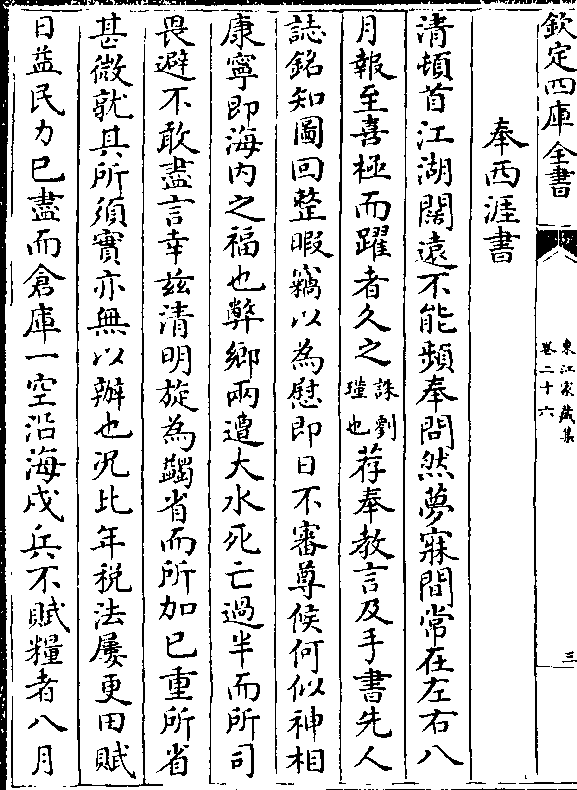 欽定四庫全書
東江家藏集
卷二十六
三
奉西涯書
清頓首江湖闊遠不能頻奉問然夢寐間常在左右八
月報至喜極而躍者久之誅劉瑾也荐奉教言及手書先人
誌銘知圖回整暇竊以為慰即日不審尊候何似神相
康寧即海内之福也弊鄉兩遭大水死亡過半而所司
畏避不敢盡言幸兹清明旋為蠲省而所加已重所省
甚微就其所須實亦無以辦也况比年税法屢更田賦
日益民力已盡而倉庫一空沿海戍兵不賦糧者八月